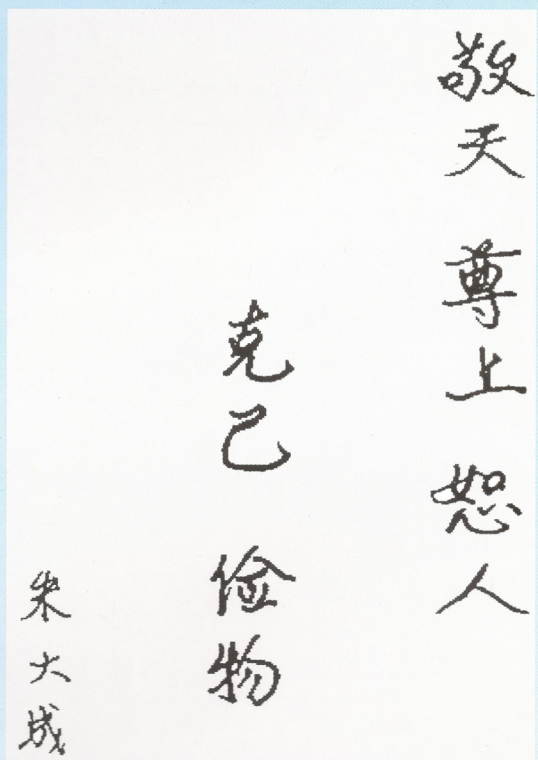 敬天 尊上 恕人
克己 俭物
朱大成